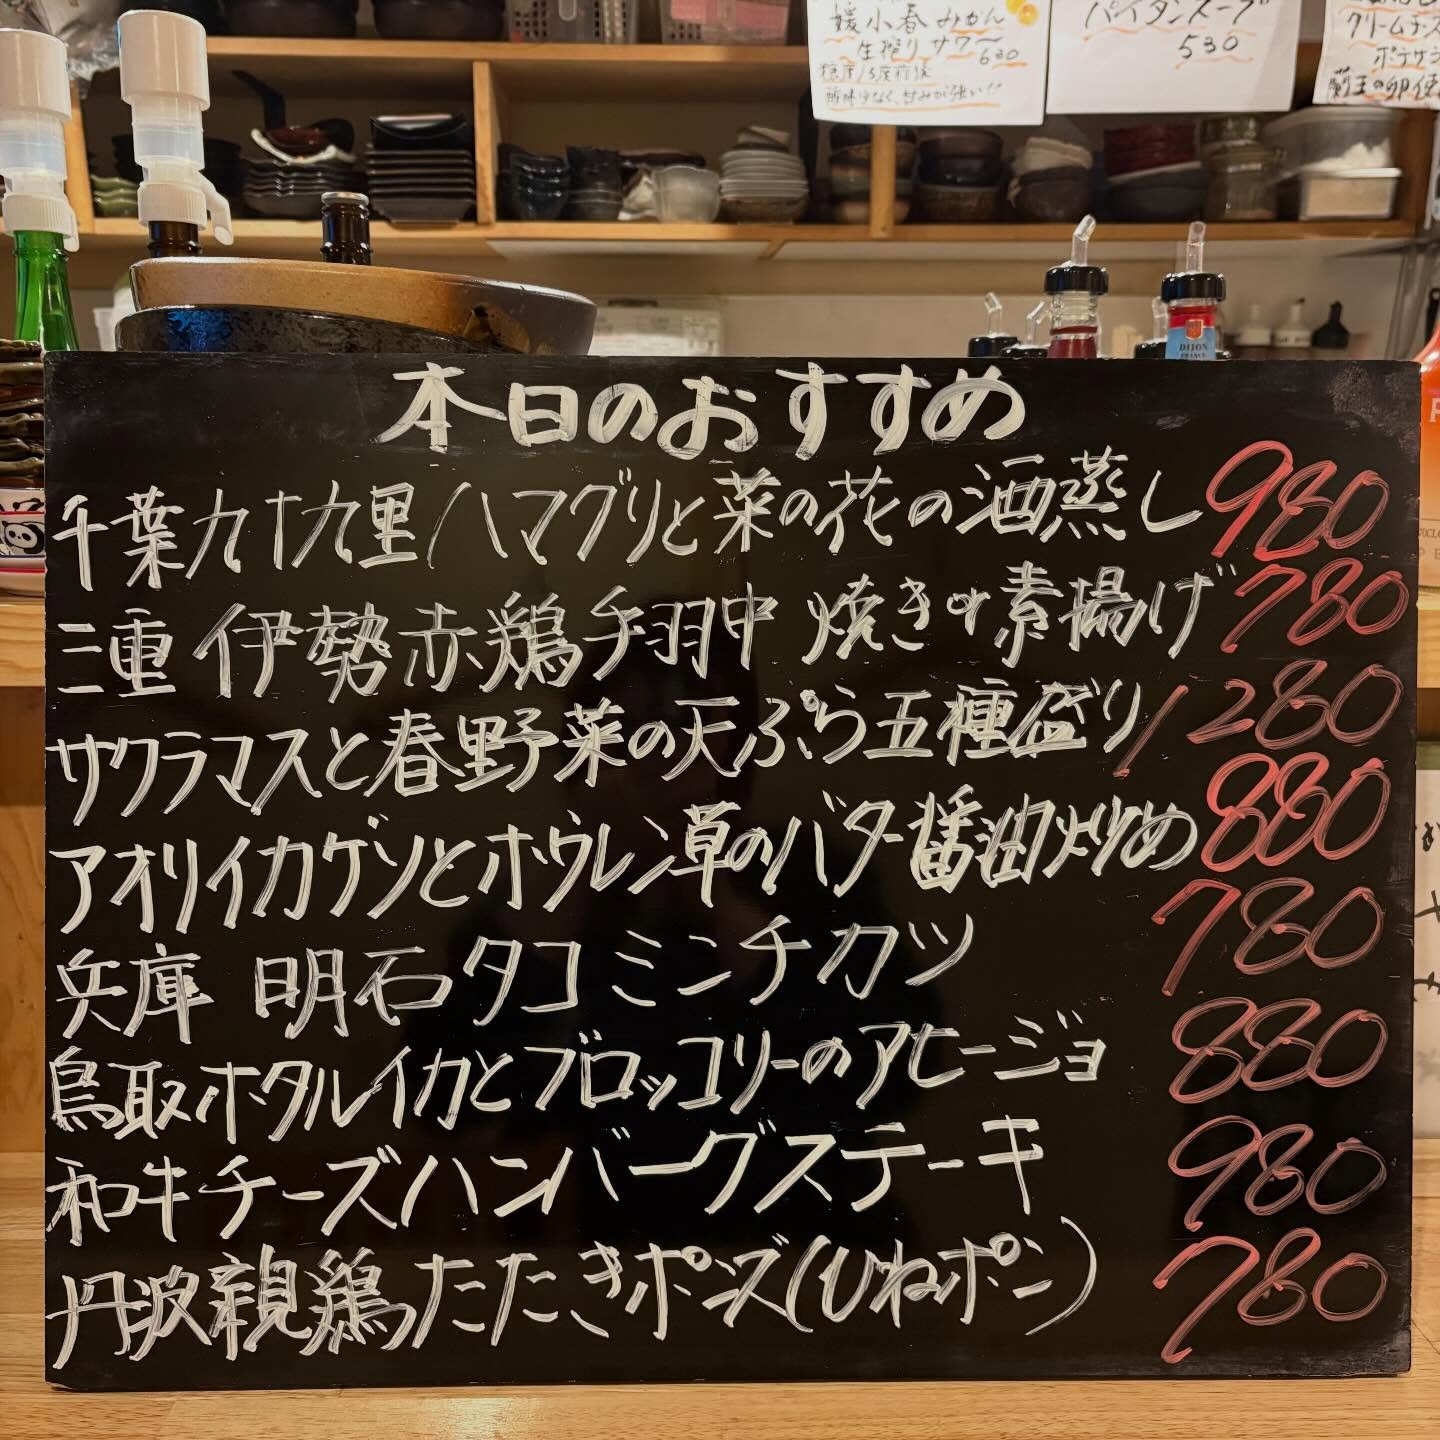 媛小春みかん
生搾りサワー
630
パイタンスープ
530
クリームチーズ
ポテサラ
蘭王の卵使
DIJON
FRANCE
本日のおすすめ
千葉九十九里ハマグリと菜の花の酒蒸し 980
三重 伊勢赤鶏手羽中 焼きor素揚げ 780
サクラマスと春野菜の天ぷら五種盛り 1280
アオリイカゲソとホウレン草のバター醤油炒め 880
兵庫 明石タコミンチカツ 780
鳥取ホタルイカとブロッコリーのアヒージョ 880
和牛チーズハンバーグステーキ 980
丹波親鶏たたきポンズ(ひねポン) 780